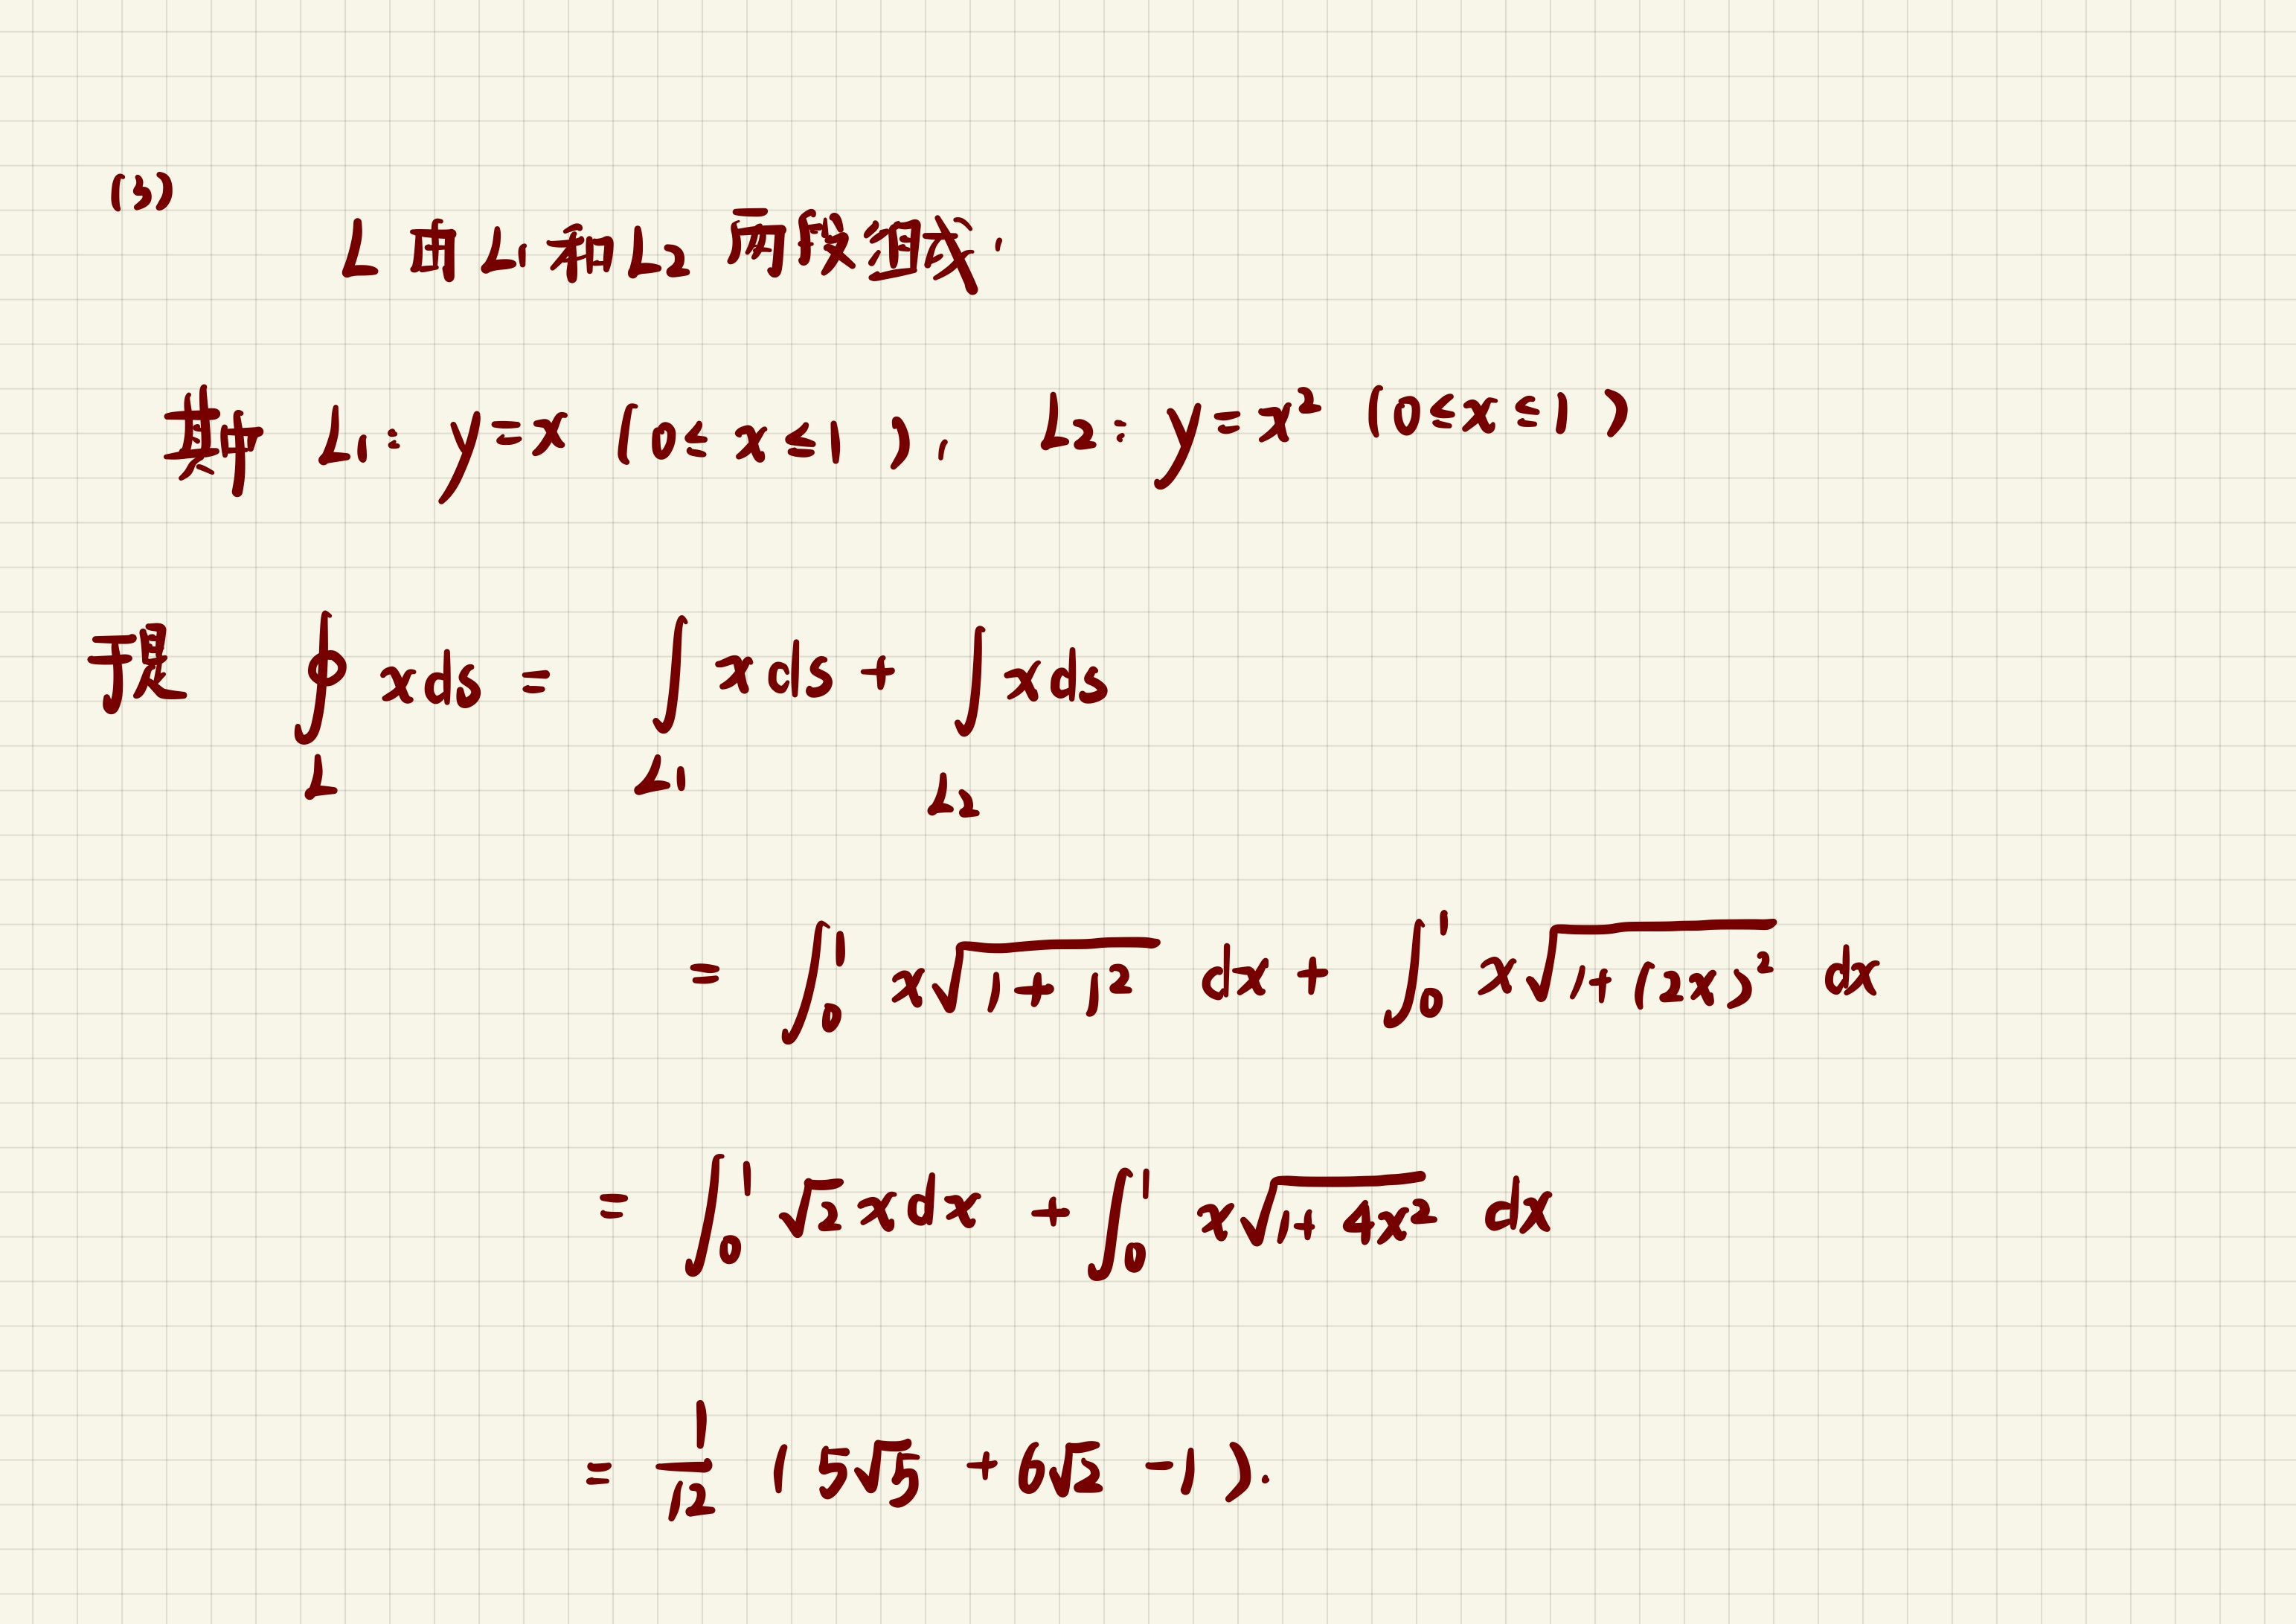 (3)
L由L₁和L₂两段组成.
其中 L₁: y=x (0≤x≤1), L₂: y=x² (0≤x≤1)
于是 ∮_L xds = ∫_L₁ xds + ∫_L₂ xds
= ∫₀¹ x√(1+1²) dx + ∫₀¹ x√(1+(2x)²) dx
= ∫₀¹ √2 xdx + ∫₀¹ x√(1+4x²) dx
= 1/12 (5√5 + 6√2 -1).